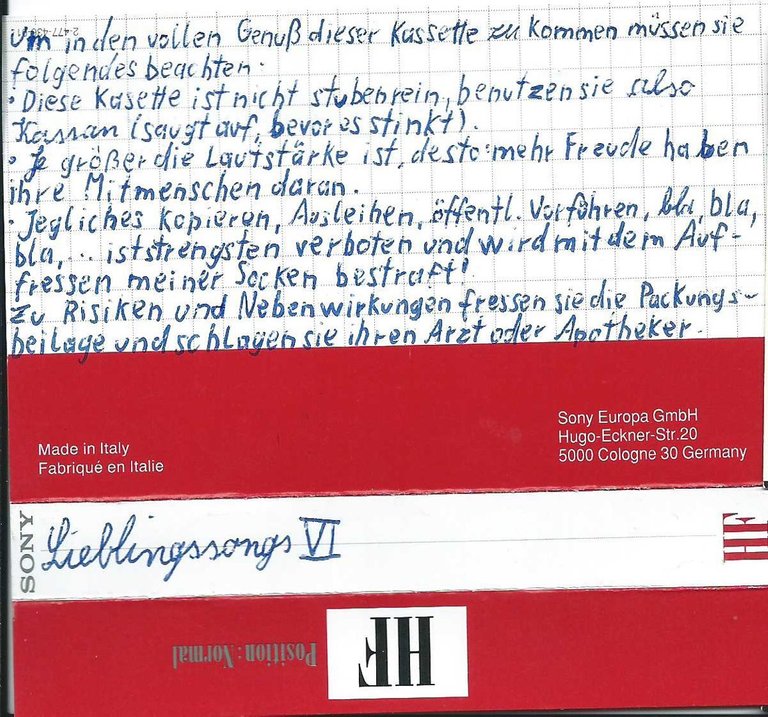 Um in den vollen Genuß dieser Kassette zu kommen müssen sie
folgendes beachten.
• Diese Kasette ist nicht stubenrein, benutzen sie also
(saugt auf, bevor es stinkt).
• Je größer die Lautstärke ist, desto mehr Freude haben
ihre Mitmenschen daran.
• Jegliches Kopieren, Ausleihen, öffentl. Vorführen, bla, bla,
bla, ... ist strengsten verboten und wird mit dem Auf-
fressen meiner Socken bestraft!
Zu Risiken und Nebenwirkungen fressen sie die Packungs-
beilage und schlagen sie ihren Arzt oder Apotheker.
Made in Italy
Fabriqué en Italie
Sony Europa GmbH
Hugo-Eckner-Str.20
5000 Cologne 30 Germany
SONY
Lieblingssongs VI
HF
HF
Position: Normal